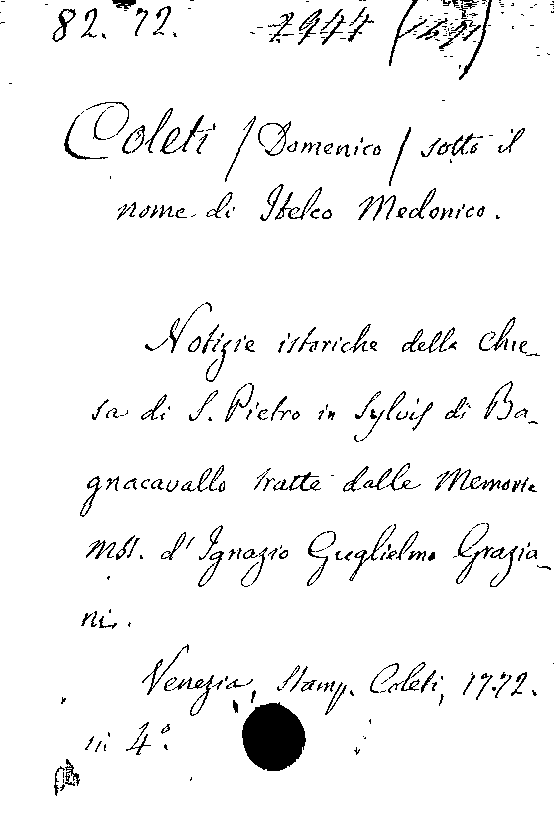 82. 72.
Coleti / Domenico / sotto il
nome di Itelco Medonico.
Notizie istoriche della Chie-
sa di S. Pietro in Sylvis di Ba-
gnacavallo tratte dalle Memorie
mss. d' Ignazio Guglielmo Grazia-
ni.
Venezia, Stamp. Coleti, 1772.
in 4º.